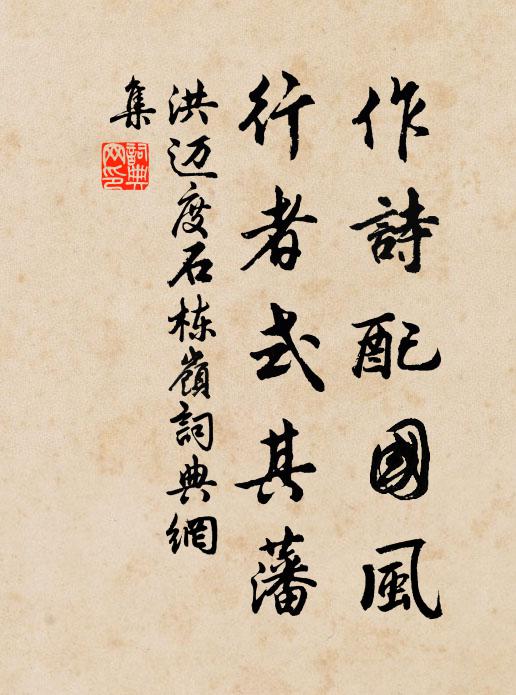 作詩配國風
行者式其藩
洪迈度石栋嶺詞典網
集
詞典
网印